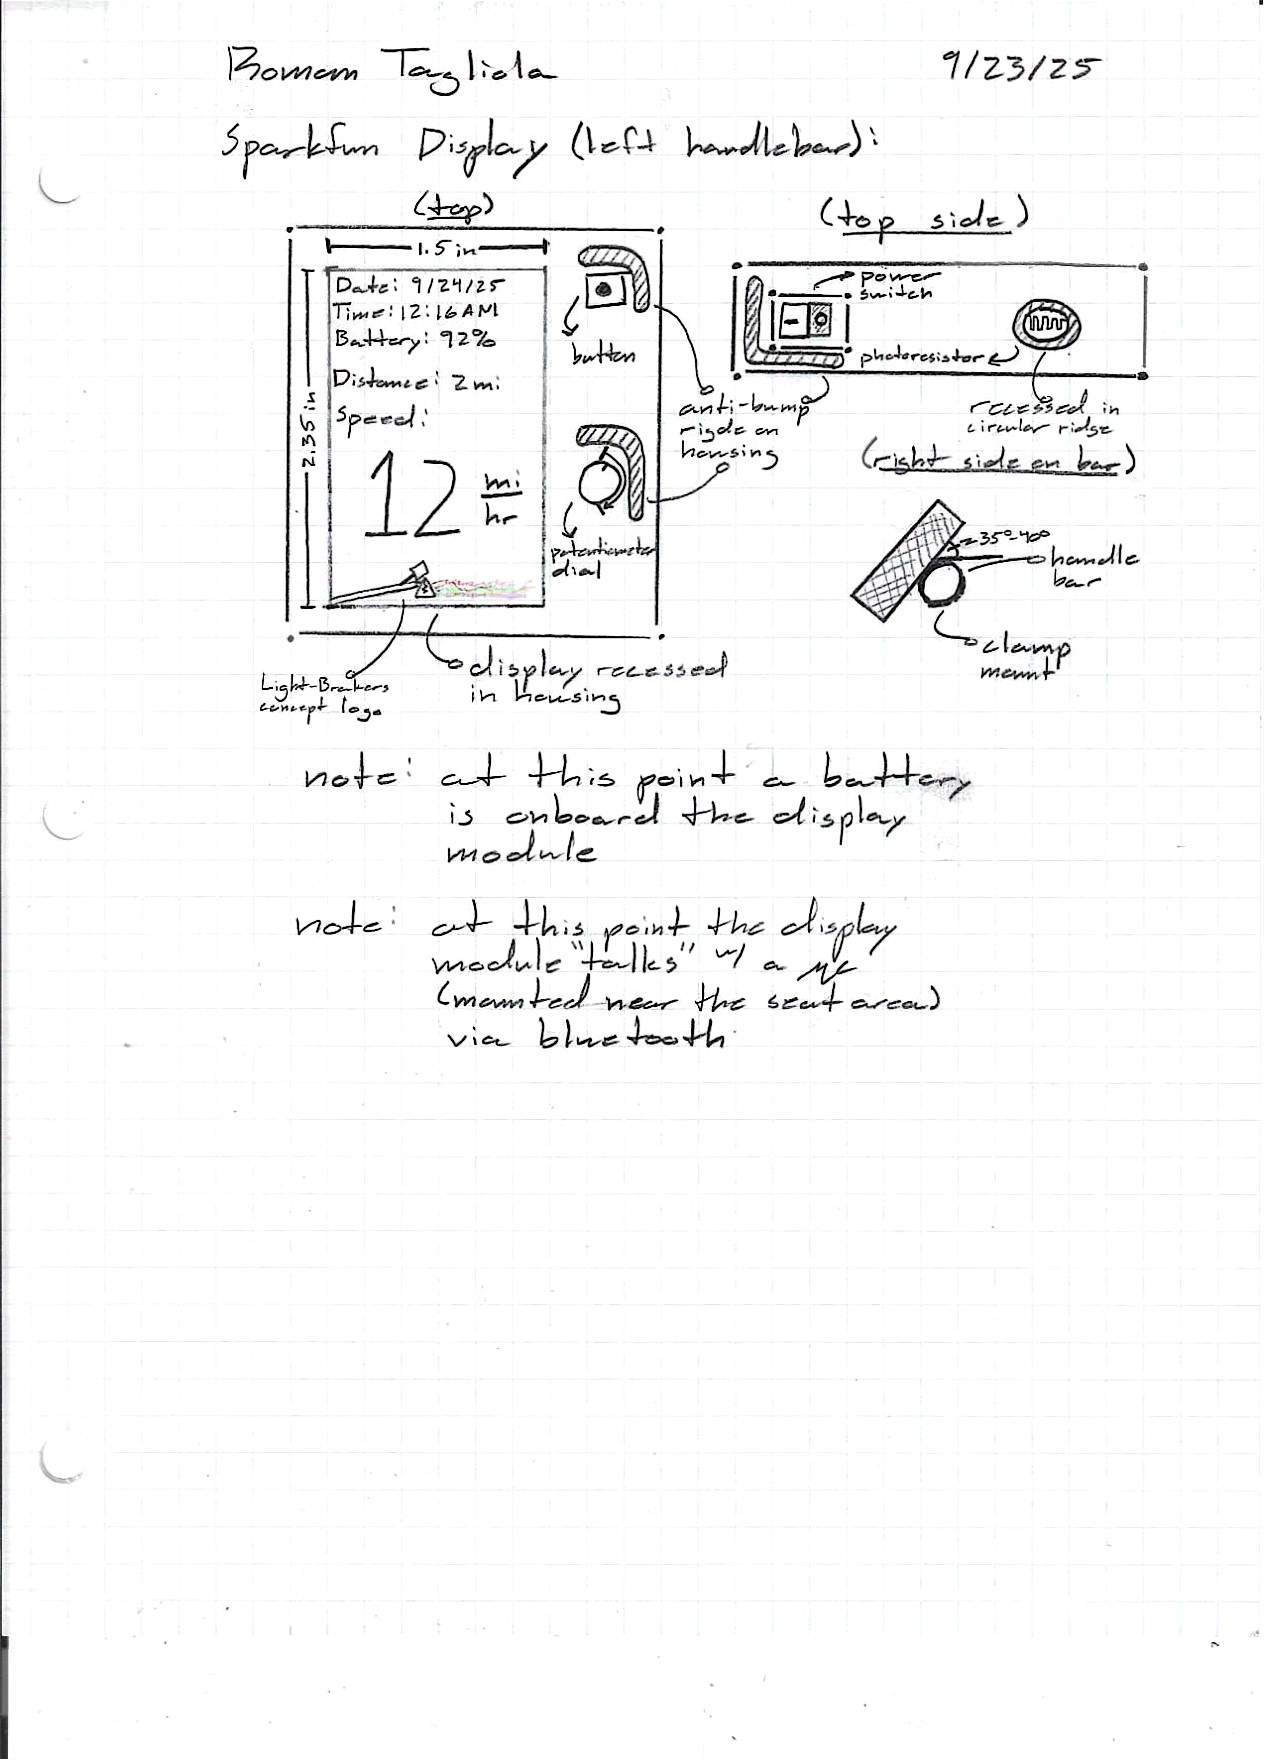 Roman Tagliola 9/23/25
Sparkfun Display (left handlebar):
(top)
1.5 in
2.35 in
Date: 9/24/25
Time: 12:16 AM
Battery: 92%
Distance: 2 mi
Speed:
12 mi/hr
button
potentiometer
dial
anti-bump
rigde on
housing
Light-Brakers
concept logo
display recessed
in housing
(top side)
power
switch
photoresistor
recessed in
circular ridge
(right side on bar)
≈35°-40°
handle
bar
clamp
mount
note: at this point a battery
is onboard the display
module
note: at this point the display
module "talks" w/ a μC
(mounted near the seat area)
via bluetooth